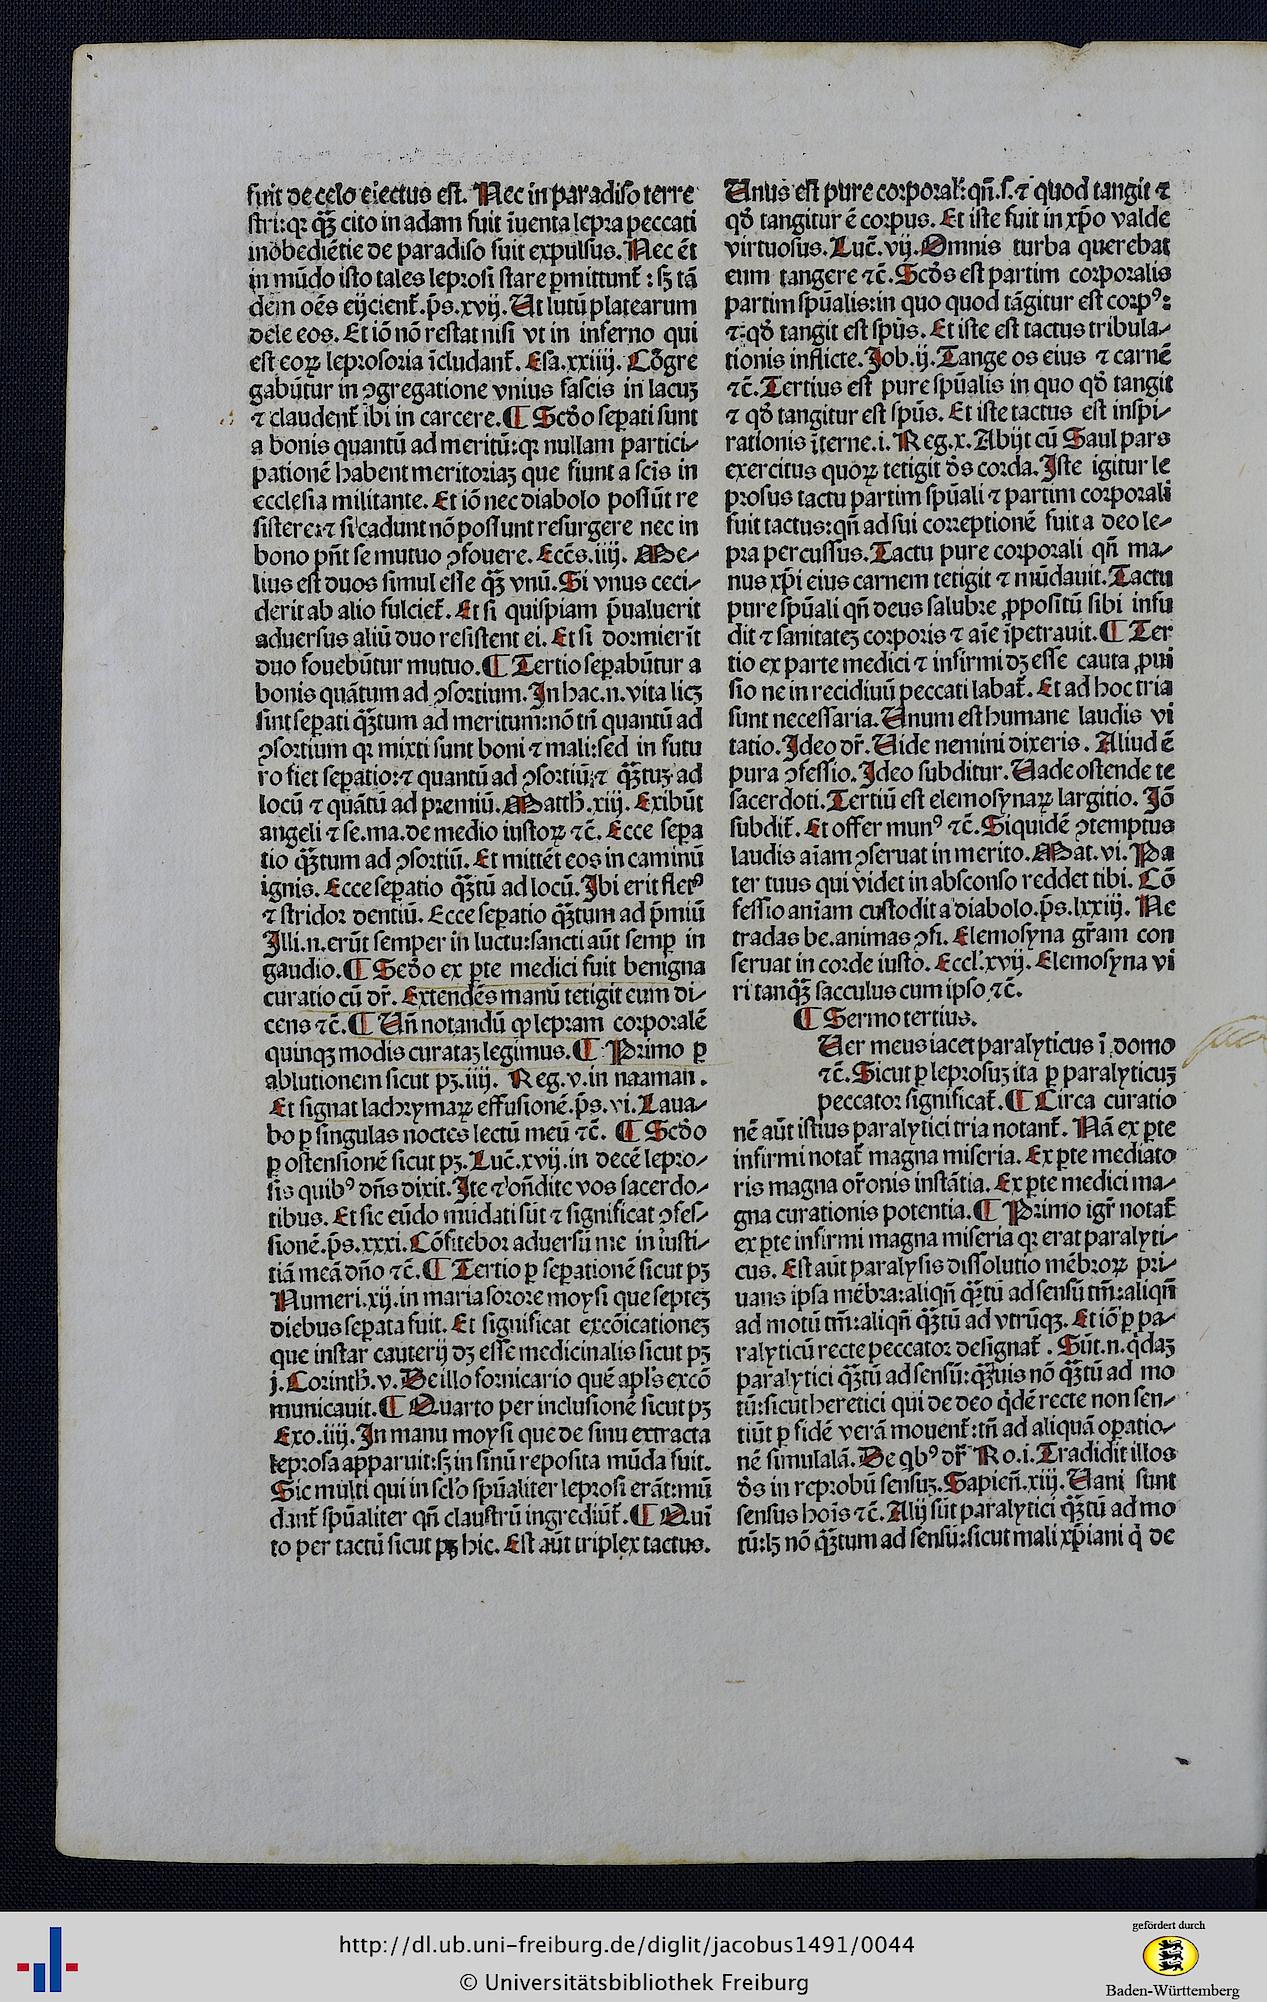 fuit de celo eiectus est. Nec in paradiso terre
stri:qꝛ qͣꝫ cito in adam fuit īuenta lepra peccati
inobediētie de paradiso fuit expulsus. Nec ēt
in mūdo isto tales leprosi stare ꝑmittunt̄ : sꝫ tā
dem oēs eijcient̄. p̄s. xvij. Ut lutū platearum
dele eos. Et iō nō restat nisi vt in inferno qui
est eoꝝ leprosoria īcludant̄. Esa. xxiiij. Cōgre
gabūtur in ꝯgregatione vnius fascis in lacuꝫ
⁊ claudent̄ ibi in carcere. ¶ Scd̄o seꝑati sunt
a bonis quantū ad meritū:qꝛ nullam partici⸗
pationē habent meritoriaꝫ que fiunt a scīs in
ecclesia militante. Et iō nec diabolo possūt re
sistere:⁊ si cadunt nō possunt resurgere nec in
bono pn̄t se mutuo ꝯfouere. Ecc̄s. iiij. Me⸗
lius est duos simul esse qͣꝫ vnū. Si vnus ceci⸗
derit ab alio fulciet̄. Et si quispiam p̄ualuerit
aduersus aliū duo resistent ei. Et si dormierit
duo fouebūtur mutuo. ¶ Tertio seꝑabūtur a
bonis quātum ad ꝯsortium. In hac. n. vita licꝫ
sint seꝑati qͣꝫtum ad meritum:nō tn̄ quantū ad
ꝯsortium qꝛ mixti sunt boni ⁊ mali:sed in futu
ro fiet seꝑatio:⁊ quantū ad ꝯsortiū:⁊ qͣꝫtuꝫ ad
locū ⁊ quātū ad premiū. Matth̄. xiij. Exibūt
angeli ⁊ se. ma. de medio iustoꝝ ⁊c̄. Ecce seꝑa
tio qͣꝫtum ad ꝯsortiū. Et mittēt eos in caminū
ignis. Ecce seꝑatio qͣꝫtū ad locū. Ibi erit fletꝰ
⁊ stridor dentiū. Ecce seꝑatio qͣꝫtum ad p̄miū
Illi. n. erūt semper in luctu:sancti aūt semꝑ in
gaudio. ¶ Scd̄o ex ꝑte medici fuit benigna
curatio cū dr̄. Extendēs manū tetigit eum di⸗
cens ⁊c̄. ¶ Un̄ notandū ꝙ lepram corporalē
quinqꝫ modis curataꝫ legimus. ¶ Primo ꝑ
ablutionem sicut pꝫ. iiij. Reg. v. in naaman.
Et signat lachrymaꝝ effusionē. p̄s. vi. Laua⸗
bo ꝑ singulas noctes lectū meū ⁊c̄. ¶ Scd̄o
ꝑ ostensionē sicut pꝫ. Luc̄. xvij. in decē lepro⸗
sis quibꝰ dn̄s dixit. Ite ⁊ on̄dite vos sacerdo⸗
tibus. Et sic eūdo mūdati sūt ⁊ significat ꝯfes⸗
sionē. p̄s. xxxi. Cōfitebor aduersū me in iusti⸗
tiā meā dn̄o ⁊c̄. ¶ Tertio ꝑ seꝑationē sicut pꝫ
Numeri. xij. in maria sorore moysi que septeꝫ
diebus seꝑata fuit. Et significat excōicationeꝫ
que instar cauterij dꝫ esse medicinalis sicut pꝫ
j. Corinth̄. v. De illo fornicario quē apl̄s excō
municauit. ¶ Quarto per inclusionē sicut pꝫ
Exo. iiij. In manu moysi que de sinu extracta
leprosa apparuit:sꝫ in sinū reposita mūda fuit.
Sic multi qui in scl̄o spūaliter leprosi erāt:mū
dant̄ spūaliter qn̄ claustrū ingrediūt̄. ¶ Qui
to per tactū sicut pꝫ hic. Est aūt triplex tactus.
Unus est pure corporal̄:qn̄. s. ⁊ quod tangit ⁊
qd̄ tangitur ē corpus. Et iste fuit in xp̄o valde
virtuosus. Luc̄. vij. Omnis turba querebat
eum tangere ⁊c̄. Scd̄s est partim corporalis
partim spūalis:in quo quod tāgitur est corpꝰ:
⁊ qd̄ tangit est spūs. Et iste est tactus tribula⸗
tionis inflicte. Job. ij. Tange os eius ⁊ carnē
⁊c̄. Tertius est pure spūalis in quo qd̄ tangit
⁊ qd̄ tangitur est spūs. Et iste tactus est inspi⸗
rationis īterne. i. Reg. x. Abijt cū Saul pars
exercitus quoꝝ tetigit d̄s corda. Iste igitur le
prosus tactu partim spūali ⁊ partim corporali
fuit tactus:qn̄ ad sui correptionē fuit a deo le⸗
pra percussus. Tactu pure corporali qn̄ ma⸗
nus xp̄i eius carnem tetigit ⁊ mūdauit. Tactu
pure spūali qn̄ deus salubre ꝓpositū sibi infu
dit ⁊ sanitateꝫ corporis ⁊ aīe īpetrauit. ¶ Ter
tio ex parte medici ⁊ infirmi dꝫ esse cauta ꝓui
sio ne in recidiuū peccati labat̄. Et ad hoc tria
sunt necessaria. Unum est humane laudis vi
tatio. Ideo dr̄. Uide nemini dixeris. Aliud ē
pura ꝯfessio. Ideo subditur. Uade ostende te
sacerdoti. Tertiū est elemosynaꝝ largitio. Iō
subdit̄. Et offer munꝰ ⁊c̄. Siquidē ꝯtemptus
laudis aīam ꝯseruat in merito. Mat. vi. Pa
ter tuus qui videt in absconso reddet tibi. Cō
fessio aniam custodit a diabolo. p̄s. lxxiij. Ne
tradas be. animas ꝯfi. Elemosyna gr̄am con
seruat in corde iusto. Eccl̄. xvij. Elemosyna vi
ri tanqͣꝫ sacculus cum ipso ⁊c̄.
¶ Sermo tertius.
Uer meus iacet paralyticus ī domo
⁊c̄. Sicut ꝑ leprosuꝫ ita ꝑ paralyticuꝫ
peccator significat̄. ¶ Circa curatio
nē aūt istius paralytici tria notant̄. Nā ex ꝑte
infirmi notat̄ magna miseria. Ex ꝑte mediato
ris magna or̄onis instātia. Ex ꝑte medici ma⸗
gna curationis potentia. ¶ Primo igr̄ notat̄
ex ꝑte infirmi magna miseria qꝛ erat paralyti⸗
cus. Est aūt paralysis dissolutio mēbroꝝ pri⸗
uans ipsa mēbra:aliqn̄ qͣꝫtū ad sensū tm̄:aliqn̄
ad motū tm̄:aliqn̄ qͣꝫtū ad vtrūqꝫ. Et iō ꝑ pa⸗
ralyticū recte peccator designat̄. Sūt. n. q̇daꝫ
paralytici qͣꝫtū ad sensū:qͣꝫuis nō qͣꝫtū ad mo
tū:sicut heretici qui de deo q̇dē recte non sen⸗
tiūt ꝑ fidē verā mouent̄:tn̄ ad aliquā oꝑatio⸗
nē simulatā. De qbꝰ dr̄ Ro. i. Tradidit illos
d̄s in reprobū sensuꝫ. Sapien̄. xiij. Uani sunt
sensus hoīs ⁊c̄. Alij sūt paralytici qͣꝫtū ad mo
tū:lꝫ nō qͣꝫtum ad sensū:sicut mali xp̄iani q̇ de
http://dl.ub.uni-freiburg.de/diglit/jacobus1491/0044
© Universitätsbibliothek Freiburg
gefördert durch
Baden-Württemberg